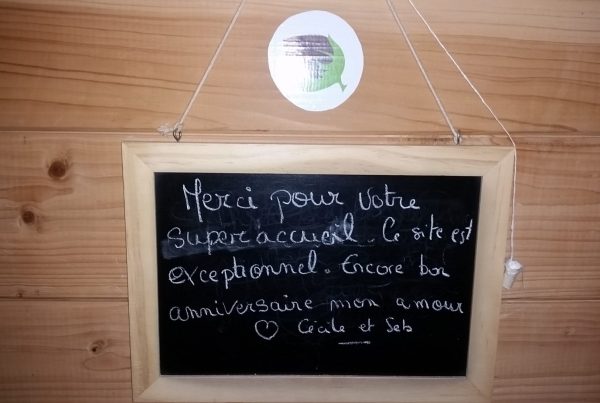 Merci pour votre
super accueil. Ce site est
exceptionnel. Encore bon
anniversaire mon amour
♡ Cécile et Seb